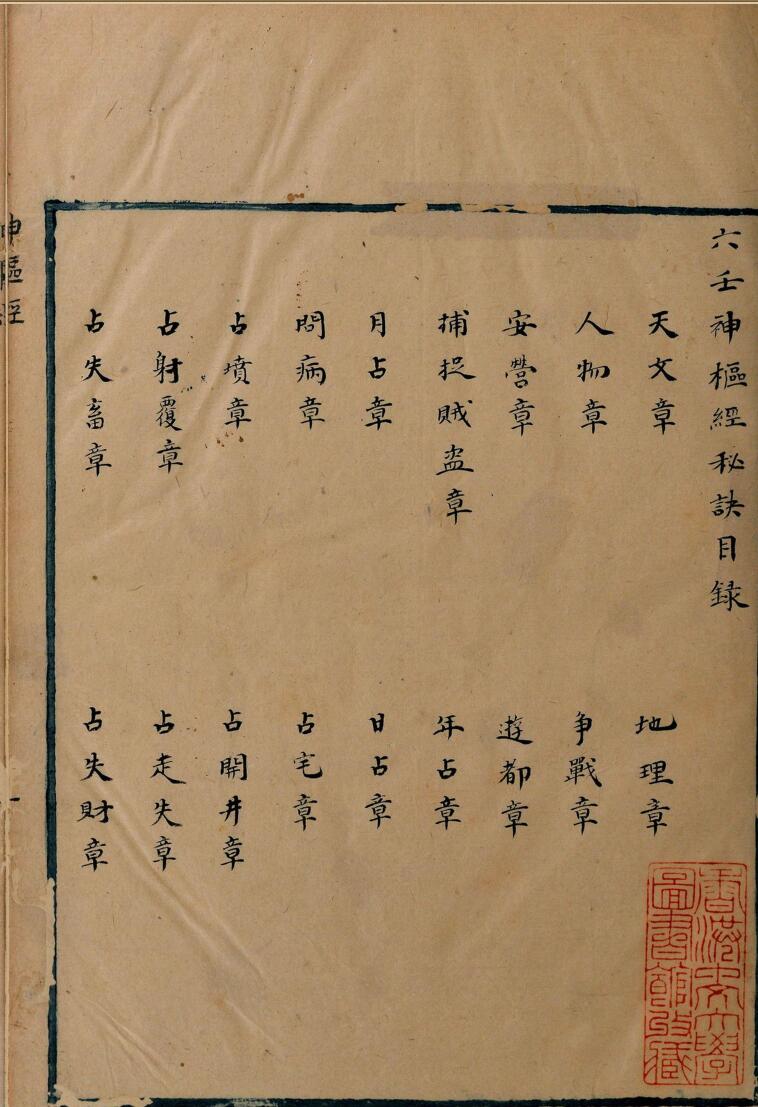 六壬神樞經秘訣目録
天文章
地理章
人物章
争戰章
安營章
遊都章
捕捉賊盗章
年占章
月占章
日占章
問病章
占宅章
占墳章
占開井章
占射覆章
占走失章
占失畜章
占失財章
神樞經
一
香港中文大學
圖書館收藏